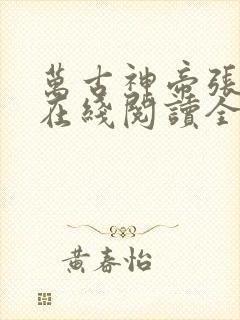 萬古神帝張
在綫閱讀全
黃春怡